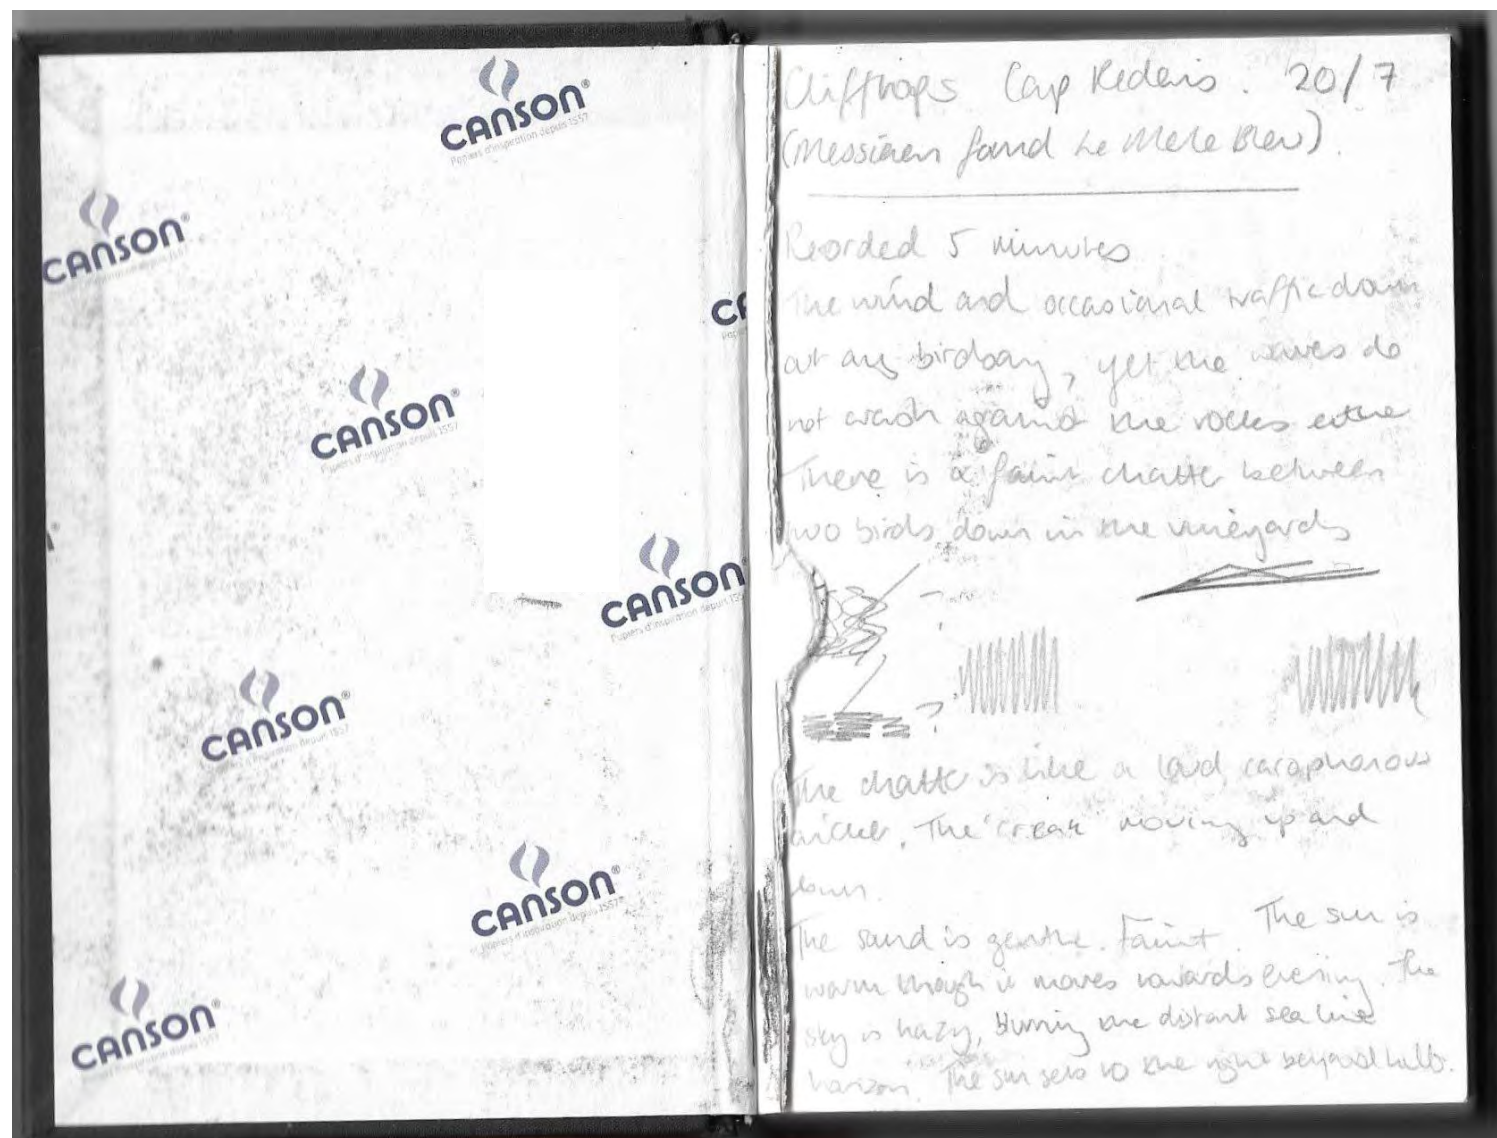 CANSON®
Papiers d'inspiration depuis 1557
CANSON®
CANSON®
Papiers d'inspiration depuis 1557
CANSON®
Papiers d'inspiration depuis 1557
CANSON®
CANSON®
Papiers d'inspiration depuis 1557
CANSON®
Clifftops Cap Rederis. 20/7
(Messiaen found Le Merle Bleu).
Recorded 5 minutes
The wind and occasional traffic drown
out any birdsong, yet the waves do
not crash against the rocks either
There is a faint chatter between
two birds down in the vineyards
The chatter is like a loud, cacophonous
cricket. The 'creak' moving up and
down.
The sound is gentle. Faint. The sun is
warm though it moves towards evening. The
sky is hazy, blurring the distant sea line
horizon. The sun sets to the right beyond hills.